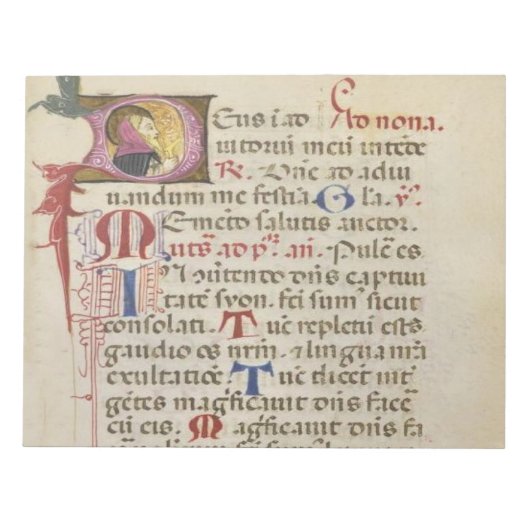 Deus i ad Ad nona.
iutoriu meu intēde
R. Dn̄e ad adiu
uandum me festia. Gla. V.
Memēto salutis auctor.
Muts̄ ad pᵃ. añ. Pulc̄ es.
In cōuertendo dn̄s captiui
tatē syon. fc̄i sum sicut
consolati. Tūc repletū est
gaudio os nrm̄. & lingua nr̄a
exultatiōe. Tūc dicent int̄
gētes magn̄ficauit dn̄s face
cū eis. Magn̄ficauit dn̄s fa